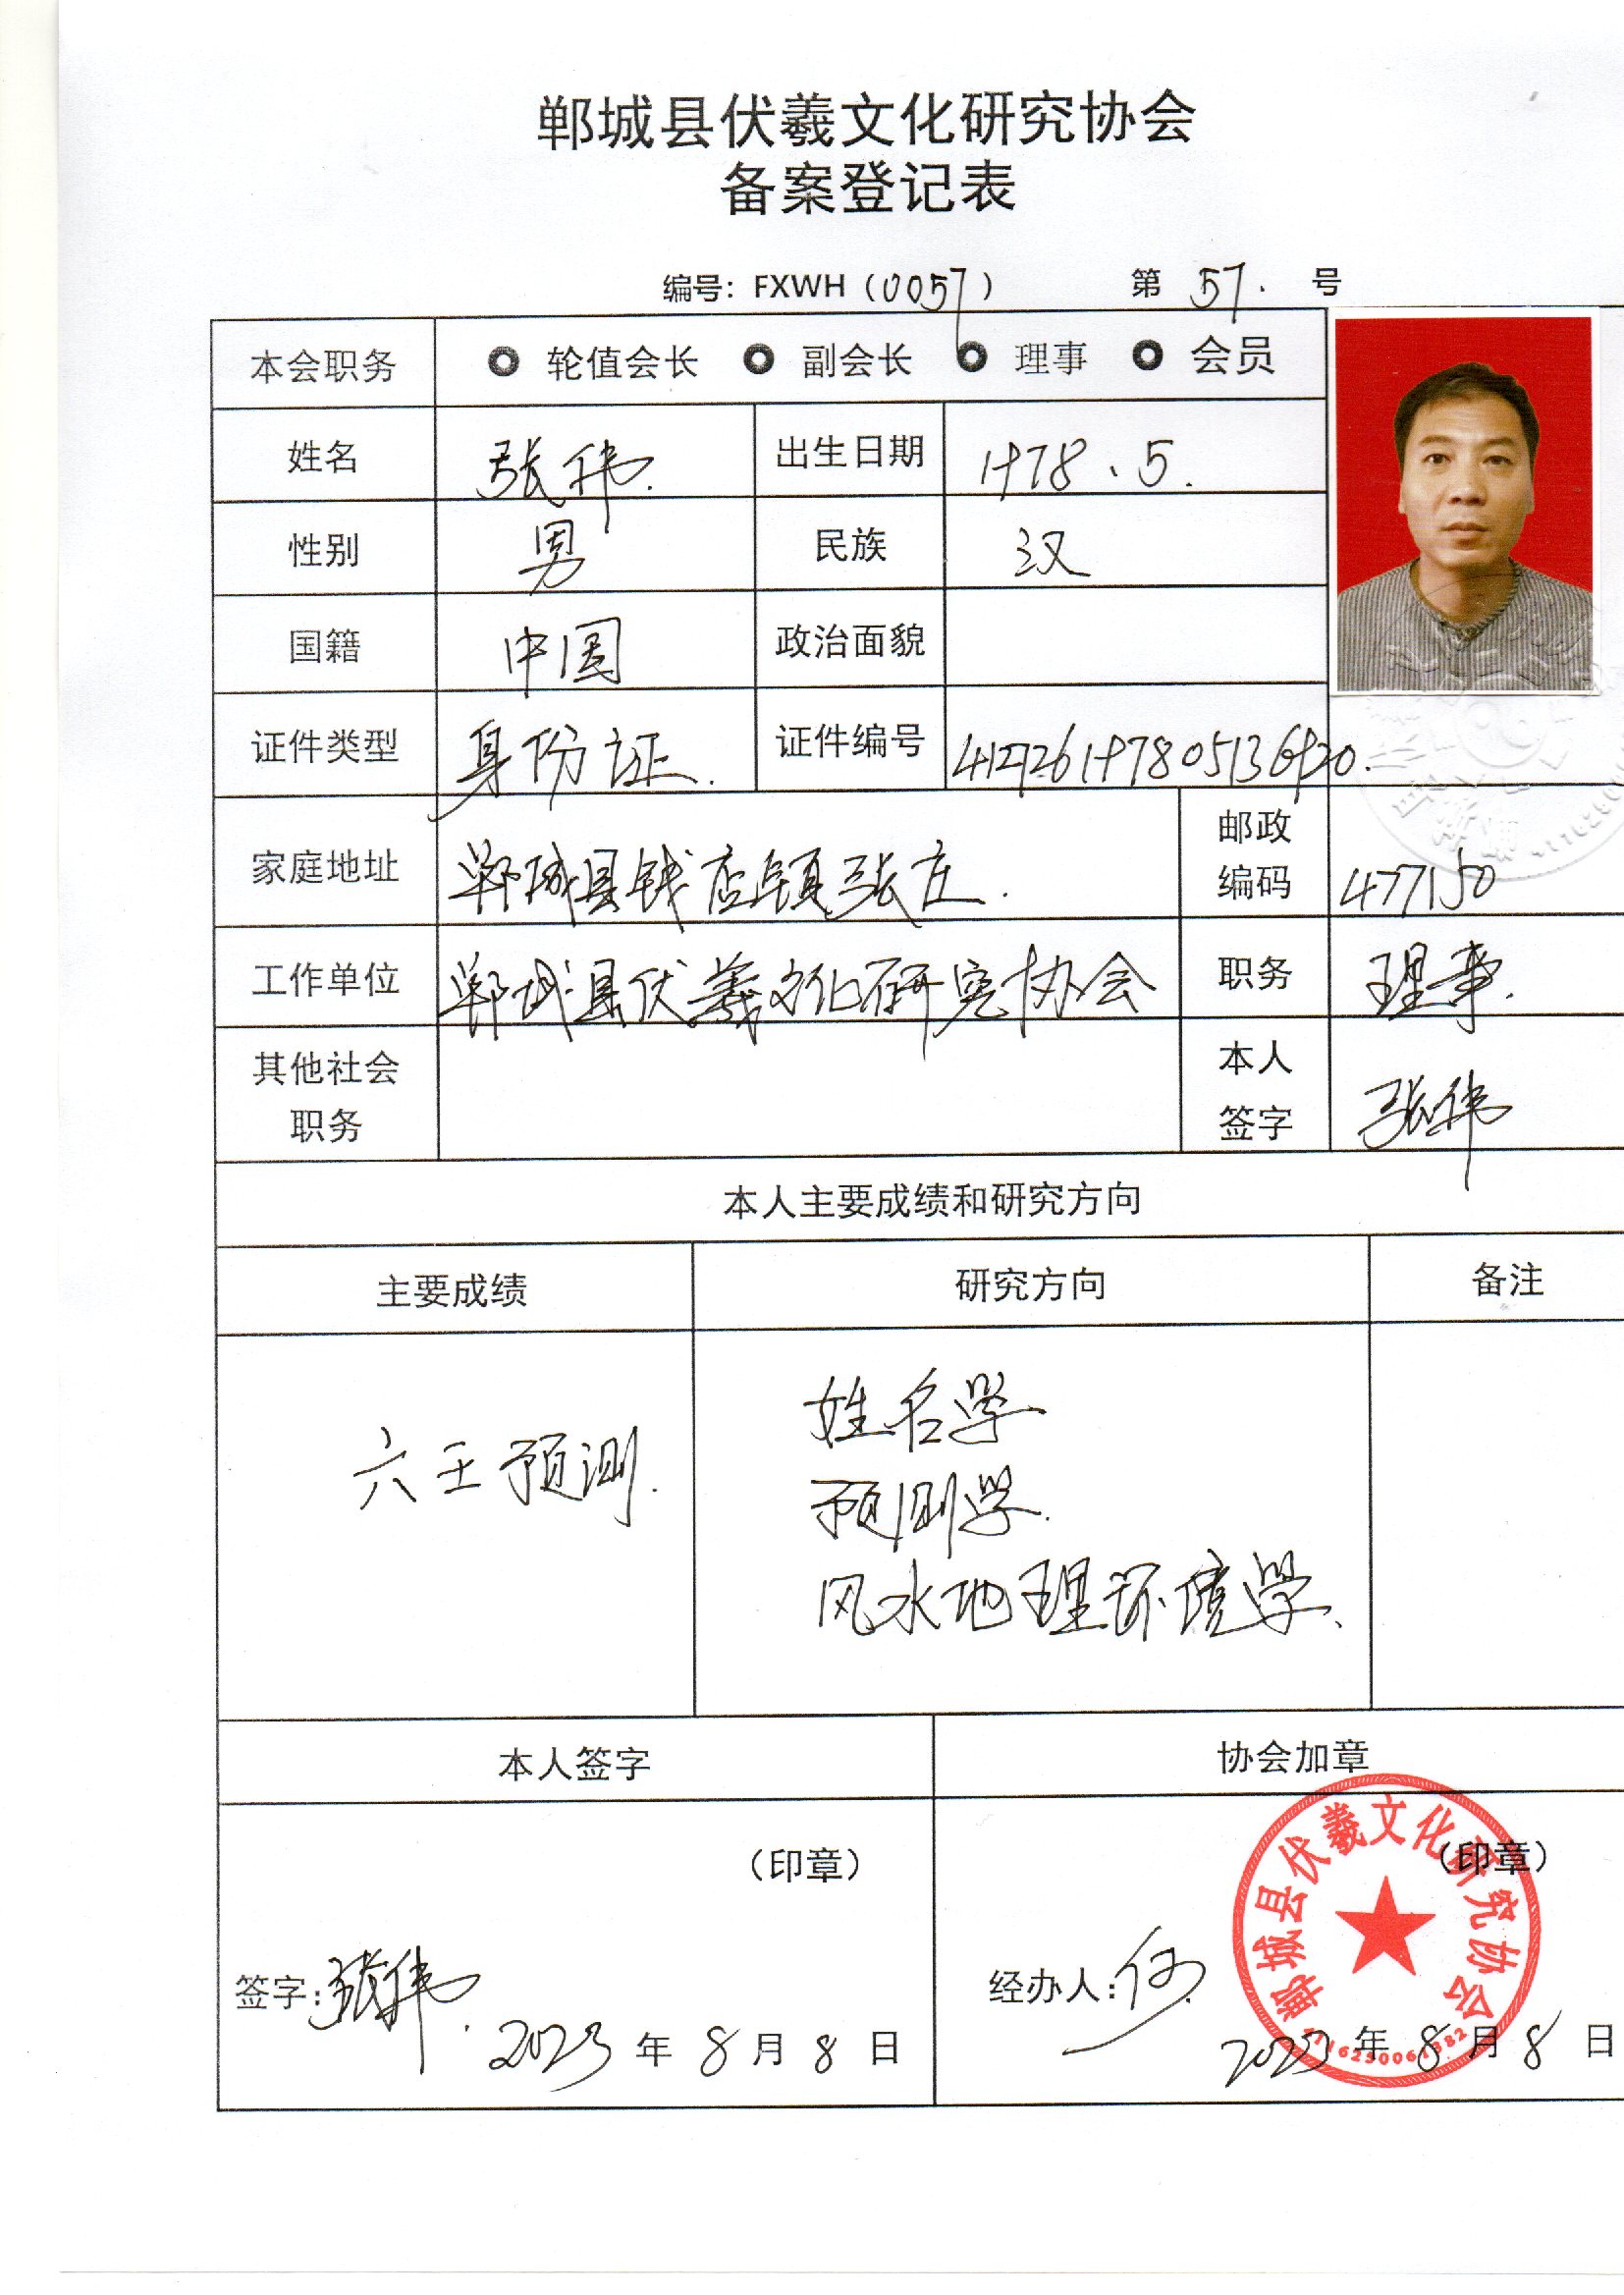 郸城县伏羲文化研究协会
备案登记表
编号：FXWH（0057） 第 57. 号
本会职务 轮值会长 副会长 理事 会员
姓名 张伟. 出生日期 1978、5.
性别 男 民族 汉
国籍 中国 政治面貌
证件类型 身份证. 证件编号 412726197805136920.
家庭地址 郸城县钱店镇张庄. 邮政编码 477150
工作单位 郸城县伏羲文化研究协会 职务 理事.
其他社会职务 本人签字 张伟
本人主要成绩和研究方向
主要成绩 研究方向 备注
六壬预测.
姓名学
预测学.
风水地理环境学、
本人签字 协会加章
（印章） （印章）
签字：张伟. 经办人：
2023 年 8 月 8 日 2023 年 8 月 8 日
郸城县伏羲文化研究协会